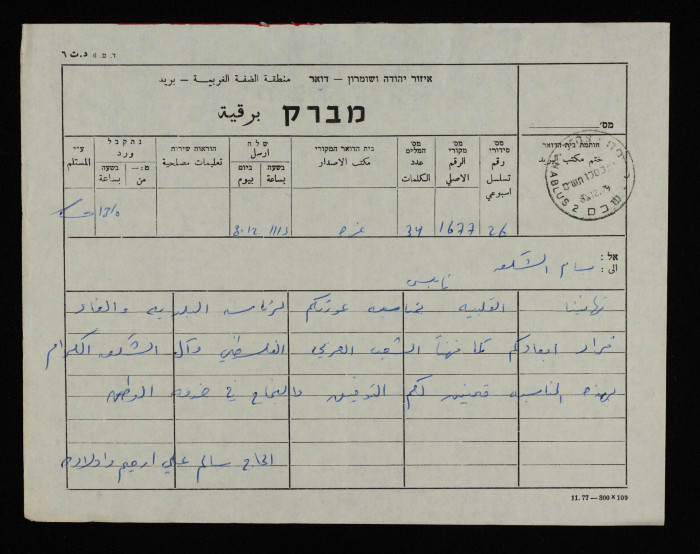 ד.ת 6 د.ت ٦
איזור יהודה ושומרון – דואר منطقة الضفة الغربية – بريد
מברק برقية
מס'
חותמת בית-הדואר
ختم مكتب البريد
NABLUS 2 שכם
מס' סידורי رقم تسلسل اسبوعي
מס' מקורי الرقم الاصلي
מס' המלים عدد الكلمات
בית הדואר המקורי مكتب الاصدار
שלח ارسل
בשעה بساعة
ביום بيوم
הוראות שירות تعليمات مصلحية
נתקבל ورد
מ:– من
בשעה بساعة
ע"י المستلم
26 1677 34 غزه 1115 3.12 1310
אל: الى: بسام الشكعه
نابلس
تهانينا القلبيه بمناسبه عودتكم لرئاسه البلديه والغاء
قرار ابعادكم كما نهنئ الشعب العربي الفلسطيني وآل الشكعه الكرام
بهذه المناسبه متمنين لكم التوفيق والنجاح في خدمه الوطن
الحاج سالم علي ارحيم واولاده
11.77—800×100